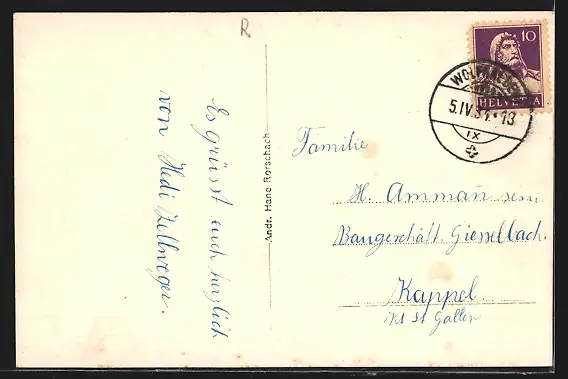 R
Es grüsst euch herzlich
von Hedi Zellweger.
Andr. Hane Rorschach
10
HELVETIA
5.IV.34.-13
IX
Familie
H. Ammañ seni
Baugeschäft. Giesselbach.
Kappel.
Kt St Gallen